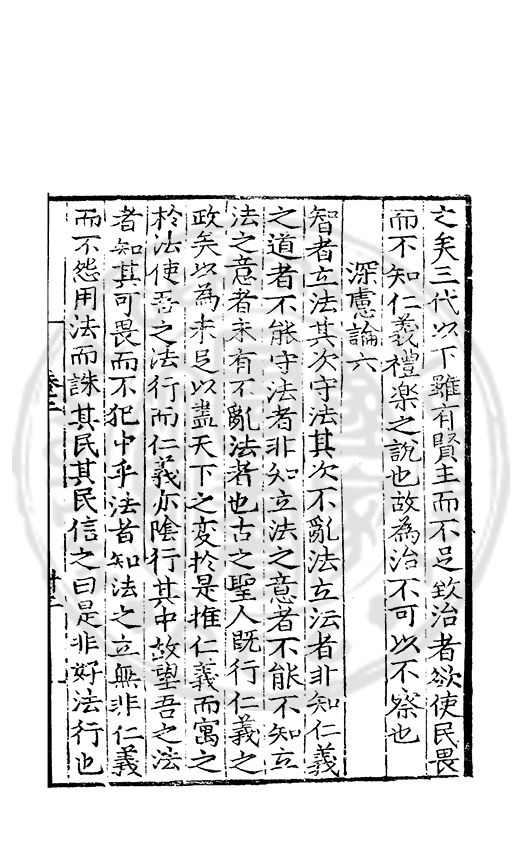 之矣三代以下雖有賢主而不足致治者欲使民畏
而不知仁義禮楽之說也故為治不可以不察也
深憲論六
智者立法其次守法其次不亂法立法者非知仁義
之道者不能守法者非知立法之意者不能不知立
法之意者未有不亂法者也古之聖人既行仁義之
政矣以為未足以盡天下之变於是推仁義而寓之
於法使吾之法行而仁義亦陰行其中故望吾之法
者知其可畏而不犯中乎法者知法之立無非仁義
而不怨用法而誅其民其民信之曰是非好法行也